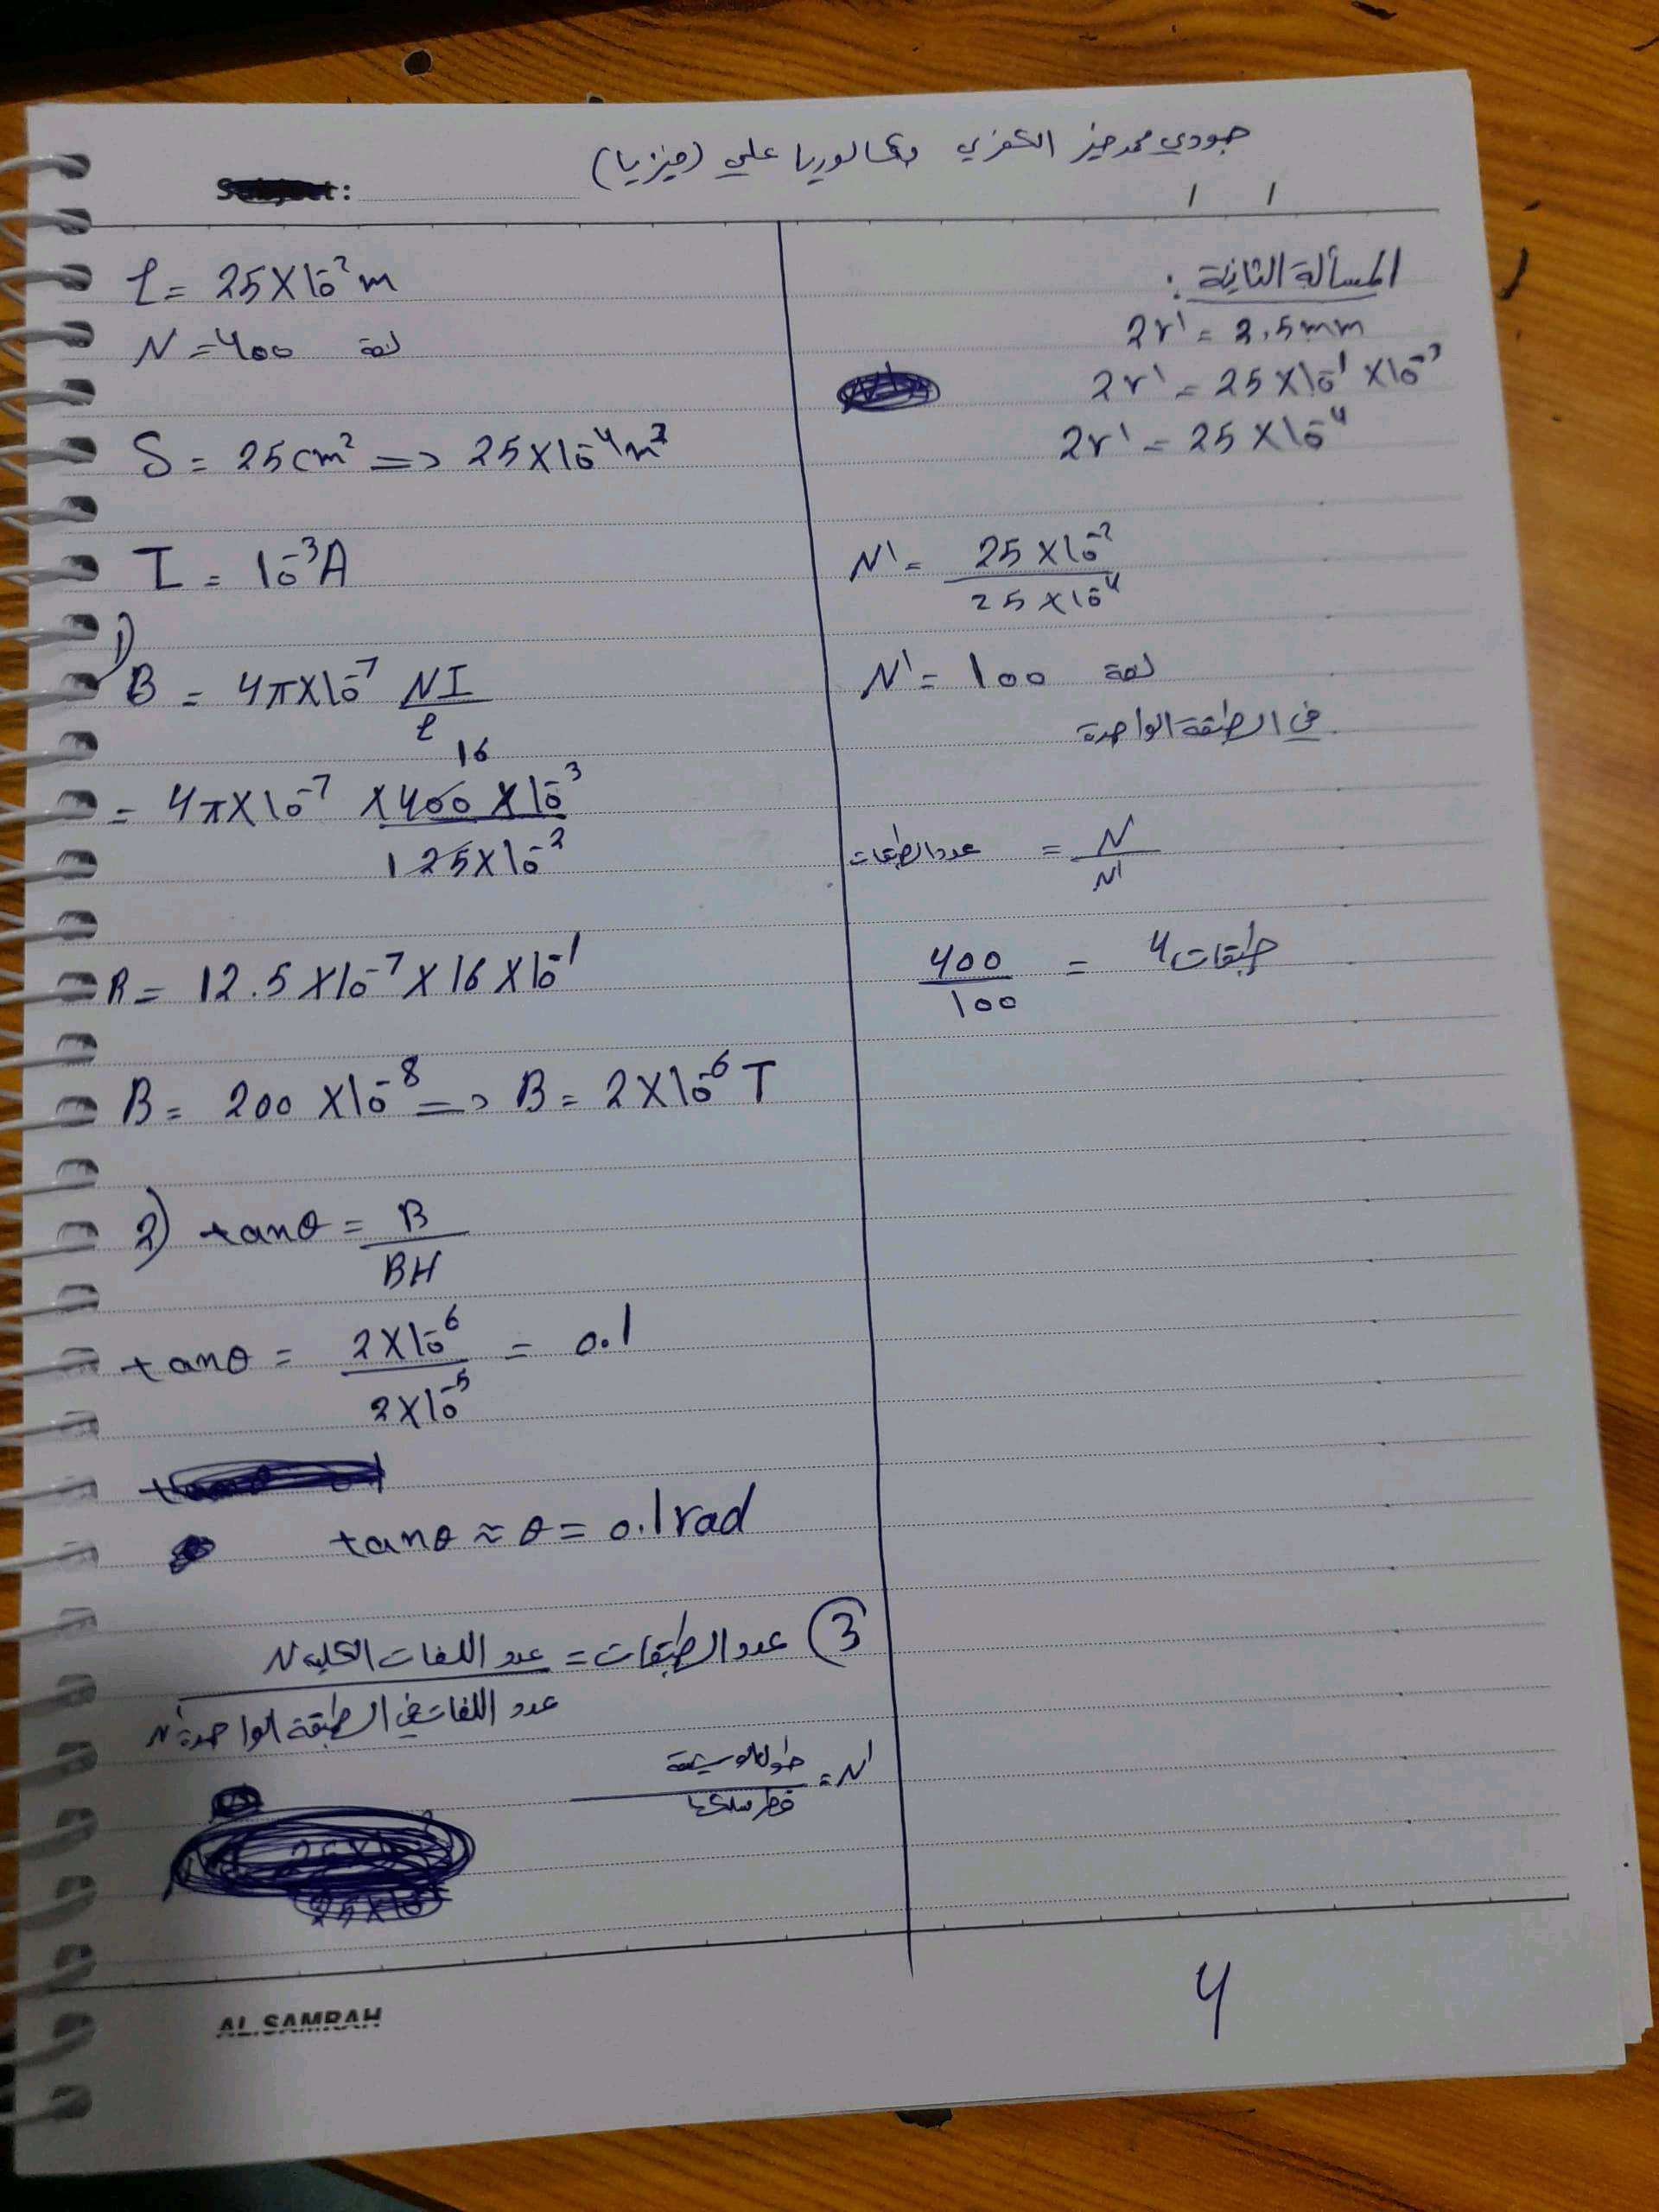 جودي محمد خير الكفري بكالوريا علمي (فيزياء)
المسألة الثانية:
ℓ = 25×10⁻² m
N = 400 لفة
S = 25 cm² => 25×10⁻⁴ m²
I = 10⁻³ A
1)
B = 4π×10⁻⁷ NI/ℓ
16
= 4π×10⁻⁷ × 400 × 10⁻³ / 1 25×10⁻²
B = 12.5×10⁻⁷ × 16×10⁻¹
B = 200×10⁻⁸ => B = 2×10⁻⁶ T
2) tanθ = B/BH
tanθ = 2×10⁻⁶ / 2×10⁻⁵ = 0.1
tanθ ≈ θ = 0.1 rad
3 عدد الطبقات = عدد اللفات الكلية N / عدد اللفات في الطبقة الواحدة N'
N' = طول الوشيعة / قطر سلكها
2r' = 2.5mm
2r' = 25×10⁻¹ × 10⁻³
2r' = 25×10⁻⁴
N' = 25×10⁻² / 25×10⁻⁴
N' = 100 لفة
في الطبقة الواحدة
عدد الطبقات = N/N'
400/100 = 4 طبقات
4
AL.SAMRAH